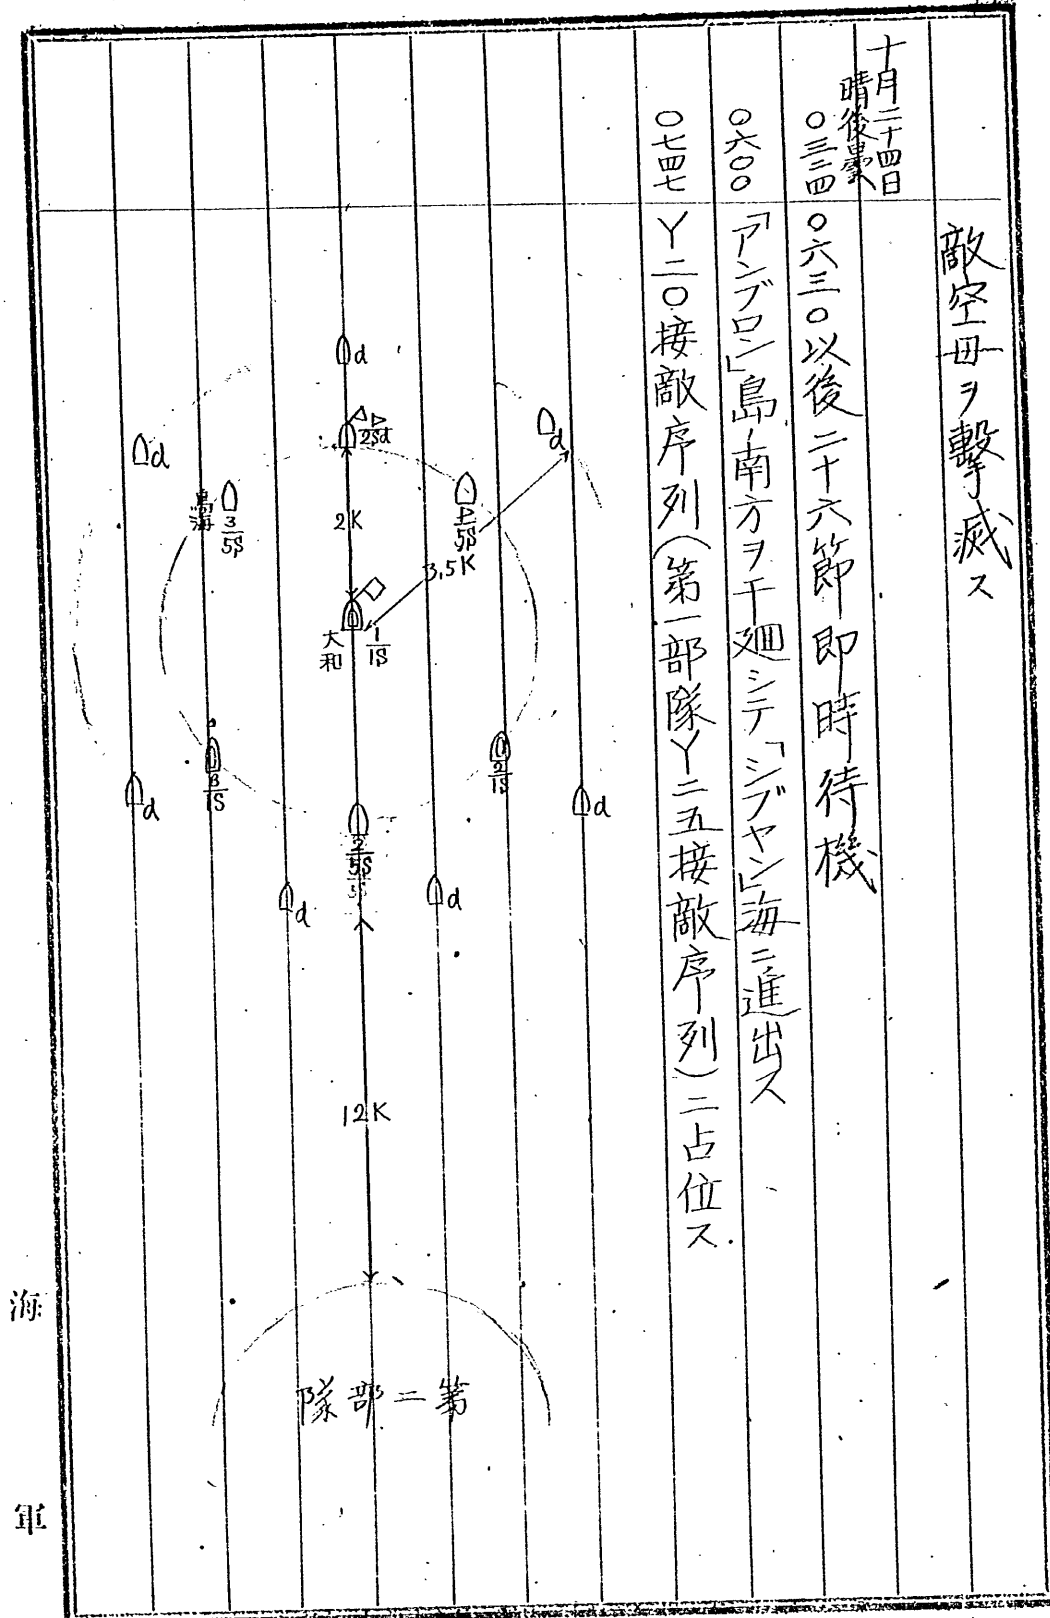 敵空母ヲ撃滅ス
十月二十四日
晴後曇
〇三二四 〇六三〇以後二十六節即時待機
〇六〇〇 「アンブロン」島ノ南方ヲ干廻シテ「シブヤン」海ニ進出ス
〇七四七 Y二〇接敵序列(第一部隊Y二五接敵序列)ニ占位ス
d
d
d
2Sd
鳥海
3/5S
1/5S
2K
3.5K
大和
1/1S
3/1S
2/1S
d
d
2/5S
d
d
12K
第二部隊
海軍